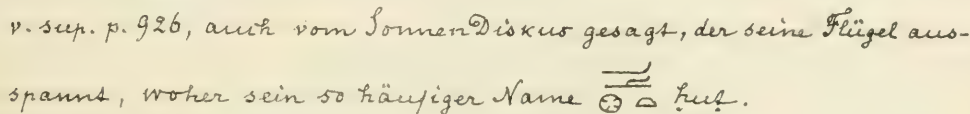 v. sup. p. 926, auch vom SonnenDiskus gesagt, der seine Flügel aus-
spannt, woher sein so häufiger Name ḥuṭ.